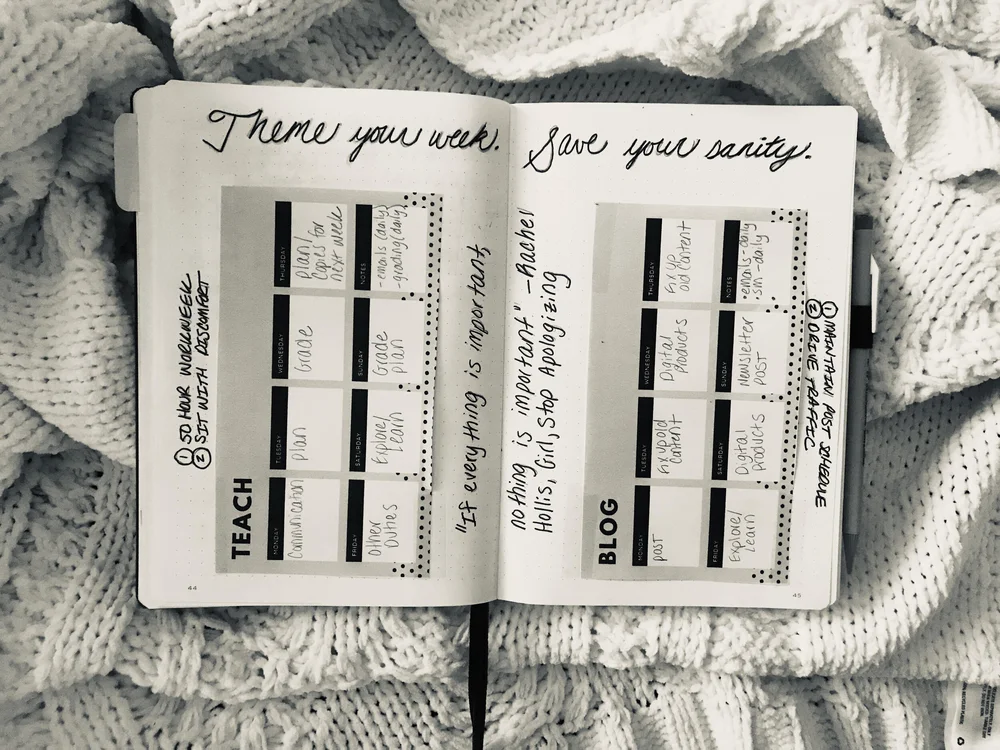 Theme your week. Save your sanity.
① 50 HOUR WORKWEEK
② SIT WITH DISCOMFORT
TEACH
MONDAY
Communication
TUESDAY
plan
WEDNESDAY
Grade
THURSDAY
plan/
copies for
next week
FRIDAY
other
Duties
SATURDAY
Explore/
Learn
SUNDAY
Grade
plan
NOTES
- emails (daily)
- grading (daily)
"If everything is important,
nothing is important" - Rachel
Hollis, "Girl, Stop Apologizing
BLOG
MONDAY
post
TUESDAY
Fix up old
content
WEDNESDAY
Digital
products
THURSDAY
Fix up
old content
FRIDAY
Explore/
Learn
SATURDAY
Digital
products
SUNDAY
Newsletter
post
NOTES
• emails - daily
• sm - daily
① MAINTAIN POST SCHEDULE
② DRIVE TRAFFIC
44
45